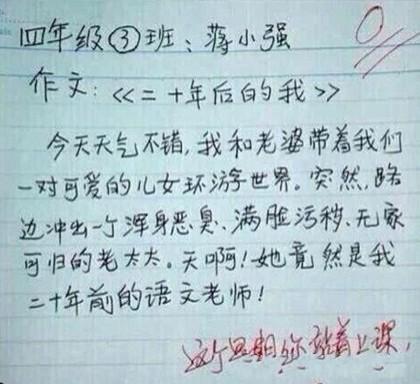 四年级③班：蒋小强
0
作文：<<二十年后的我>>
今天天气不错，我和老婆带着我们
一对可爱的儿女环游世界。突然，路
边冲出一个浑身恶臭、满脸污秽、无家
可归的老太太。天啊！她竟然是我
二十年前的语文老师！
这个星期你站着上课，